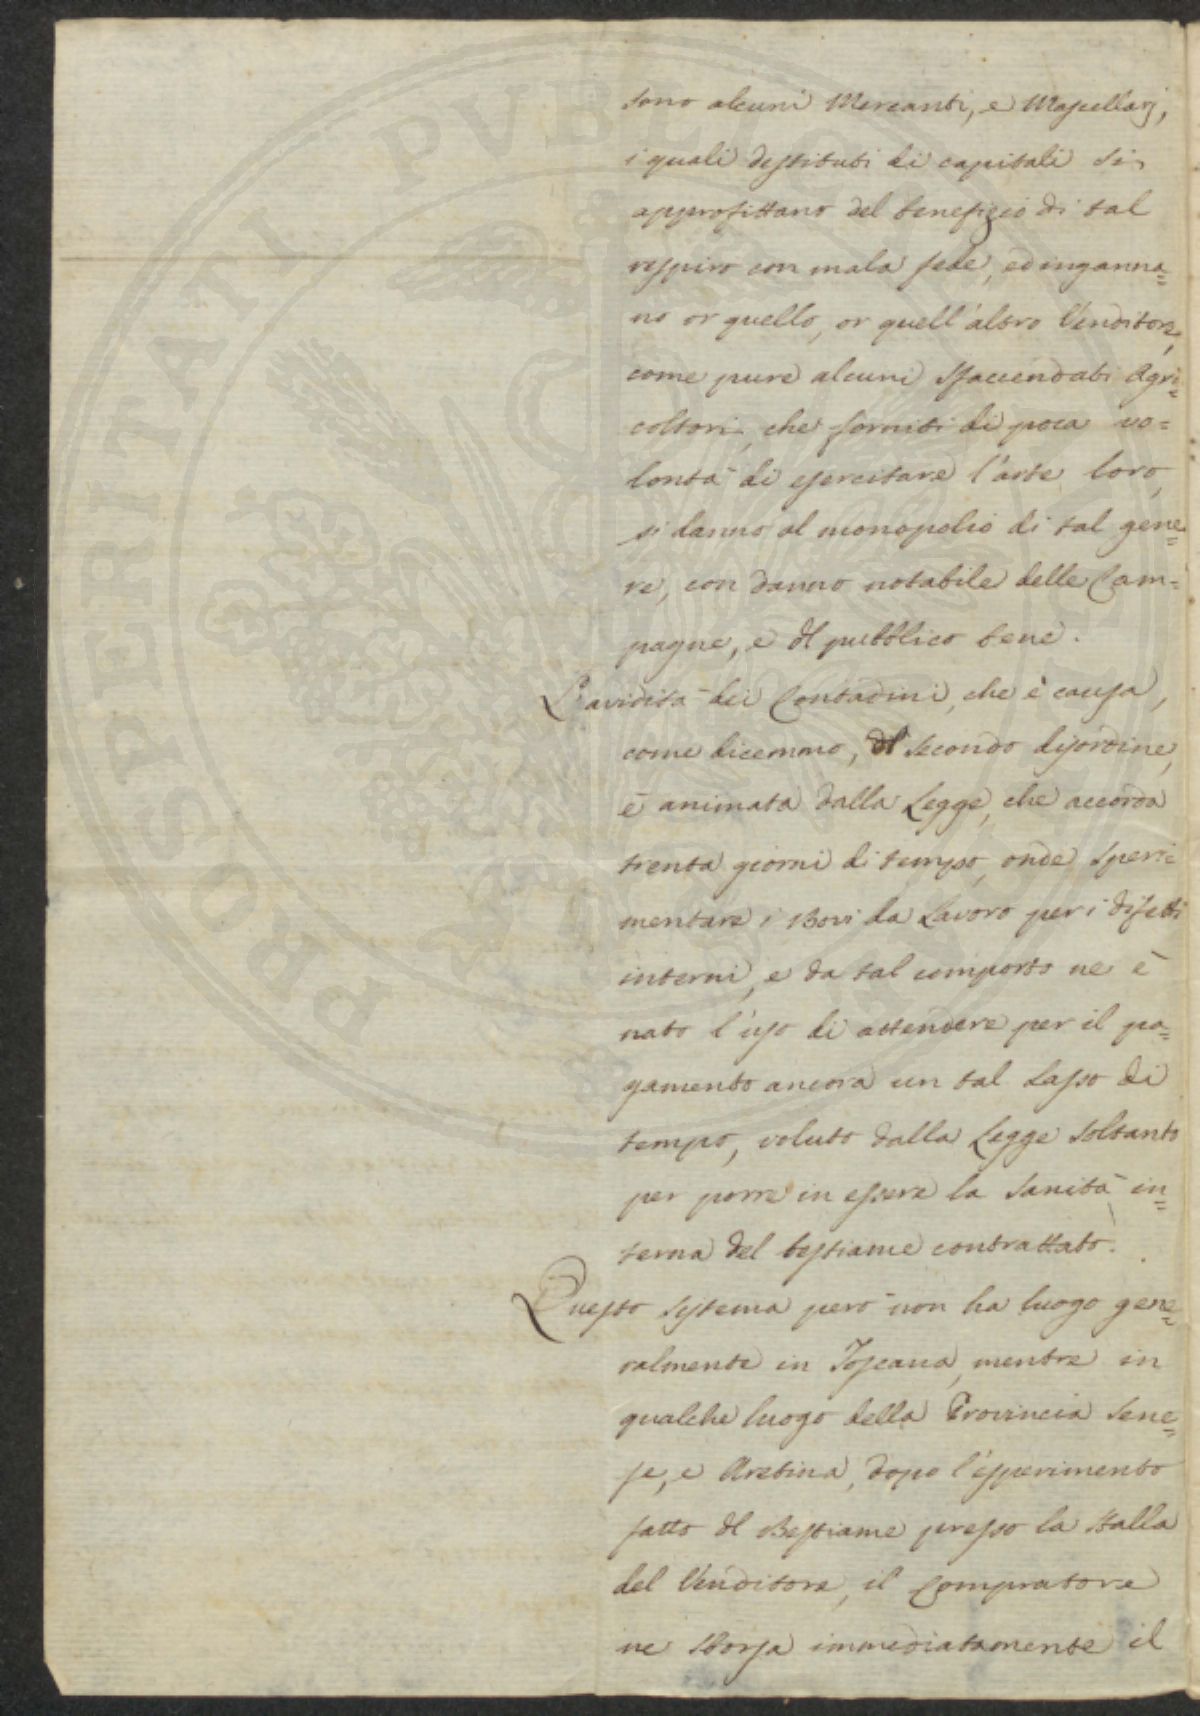 sono alcuni Mercanti, e Macellarj,
i quali destituti di capitali si
approfittano del benefizio di tal
respiro con mala fede, ed inganna=
no or quello, or quell'altro Venditore,
come pure alcuni sfaccendati Agri=
coltori, che forniti di poca vo=
lontà di esercitare l'arte loro,
si danno al monopolio di tal gene=
re, con danno notabile delle Cam=
pagne, e del pubblico bene.
L'avidità dei Contadini, che è causa,
come dicemmo, del secondo disordine,
è animata dalla Legge, che accorda
trenta giorni di tempo, onde speri=
mentare i Bovi da Lavoro per i difetti
interni, e da tal comporto ne è
nato l'uso di attendere per il pa=
gamento ancora un tal Lasso di
tempo, voluto dalla Legge soltanto
per porre in essere la sanità in=
terna del bestiame contrattato.
Questo sistema però non ha luogo gene=
ralmente in Toscana, mentre in
qualche luogo della Provincia Sene=
se, e Aretina, dopo l'esperimento
fatto del Bestiame presso la stalla
del Venditore, il Compratore
ne sborsa immediatamente il
PROSPERITATI PVBLICAE